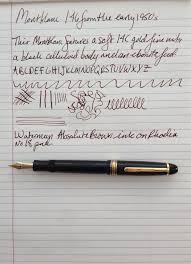 Montblanc 146 from the early 1950s
This Montblanc features a soft 14C gold fine nib
a black celluloid body and an ebonite feed
ABCDEFGHIJKLMNOPQRSTUVWXYZ
Waterman Absolute Brown ink on Rhodia
No 18 pad